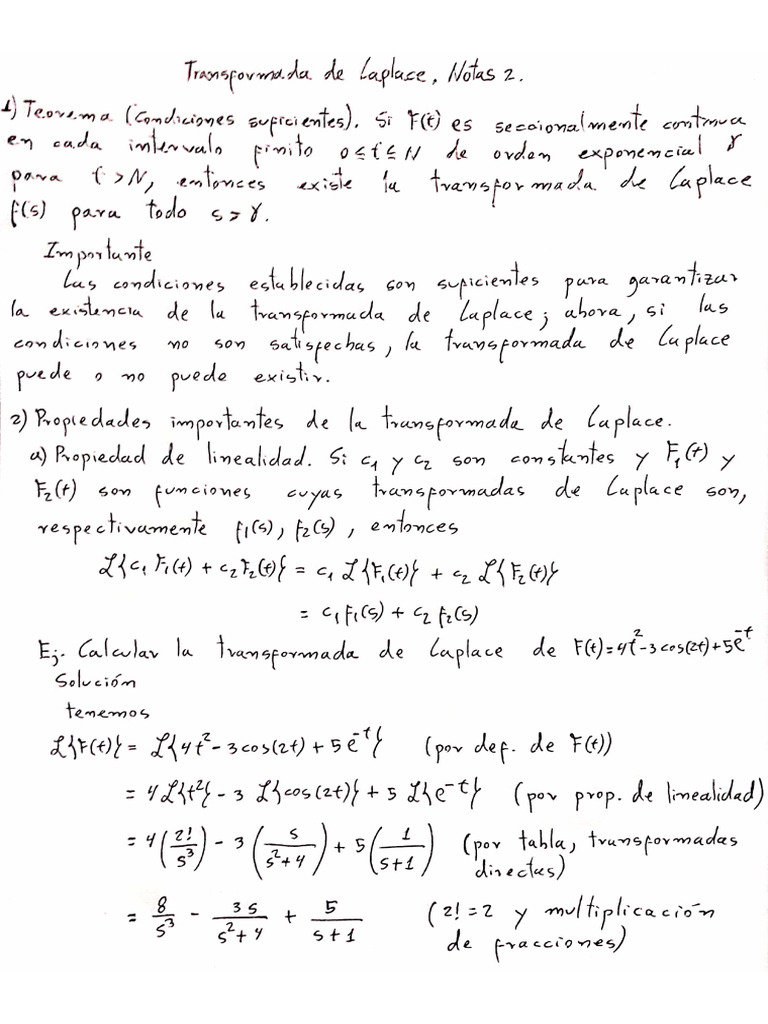 Transformada de Laplace, Notas 2.
1) Teorema (condiciones suficientes). Si F(t) es seccionalmente continua
en cada intervalo finito 0≤t≤N de orden exponencial γ
para t>N, entonces existe la transformada de Laplace
f(s) para todo s>γ.
Importante
Las condiciones establecidas son suficientes para garantizar
la existencia de la transformada de Laplace; ahora, si las
condiciones no son satisfechas, la transformada de Laplace
puede o no puede existir.
2) Propiedades importantes de la transformada de Laplace.
a) Propiedad de linealidad. Si c₁ y c₂ son constantes y F₁(t) y
F₂(t) son funciones cuyas transformadas de Laplace son,
respectivamente f₁(s), f₂(s), entonces
ℒ{c₁F₁(t) + c₂F₂(t)} = c₁ ℒ{F₁(t)} + c₂ ℒ{F₂(t)}
= c₁f₁(s) + c₂f₂(s)
Ej. Calcular la transformada de Laplace de F(t)=4t²-3cos(2t)+5e⁻ᵗ
Solución
tenemos
ℒ{F(t)} = ℒ{4t²-3cos(2t)+5e⁻ᵗ} (por def. de F(t))
= 4ℒ{t²} - 3 ℒ{cos(2t)} + 5 ℒ{e⁻ᵗ} (por prop. de linealidad)
= 4(2!/s³) - 3(s/(s²+4)) + 5(1/(s+1)) (por tabla, transformadas
directas)
= 8/s³ - 3s/(s²+4) + 5/(s+1) (2!=2 y multiplicación
de fracciones)